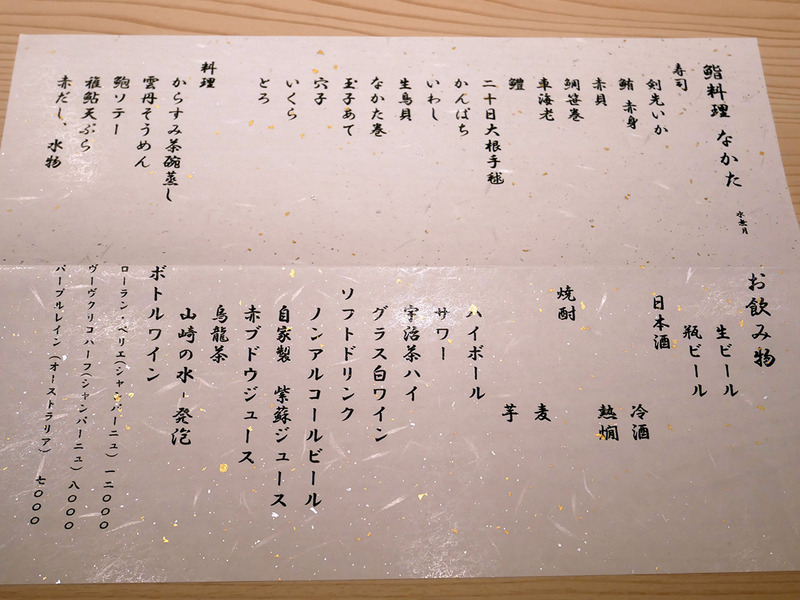 鮨料理 なかた
水無月
寿司
剣先いか
鮪 赤身
赤貝
鯛笹巻
車海老
鱧
二十日大根手毬
かんぱち
いわし
生鳥貝
なかた巻
玉子あて
穴子
いくら
とろ
料理
からすみ茶碗蒸し
雲丹そうめん
鮑ソテー
稚鮎天ぷら
赤だし、水物
お飲み物
生ビール
瓶ビール
日本酒
冷酒
熱燗
焼酎
麦
芋
ハイボール
サワー
宇治茶ハイ
グラス白ワイン
ソフトドリンク
ノンアルコールビール
自家製 紫蘇ジュース
赤ブドウジュース
烏龍茶
山崎の水-発泡
ボトルワイン
ローラン・ペリエ(シャンパーニュ) 一二〇〇〇
ヴーヴクリコハーフ(シャンパーニュ) 八〇〇〇
パープルレイン(オーストラリア) 七〇〇〇